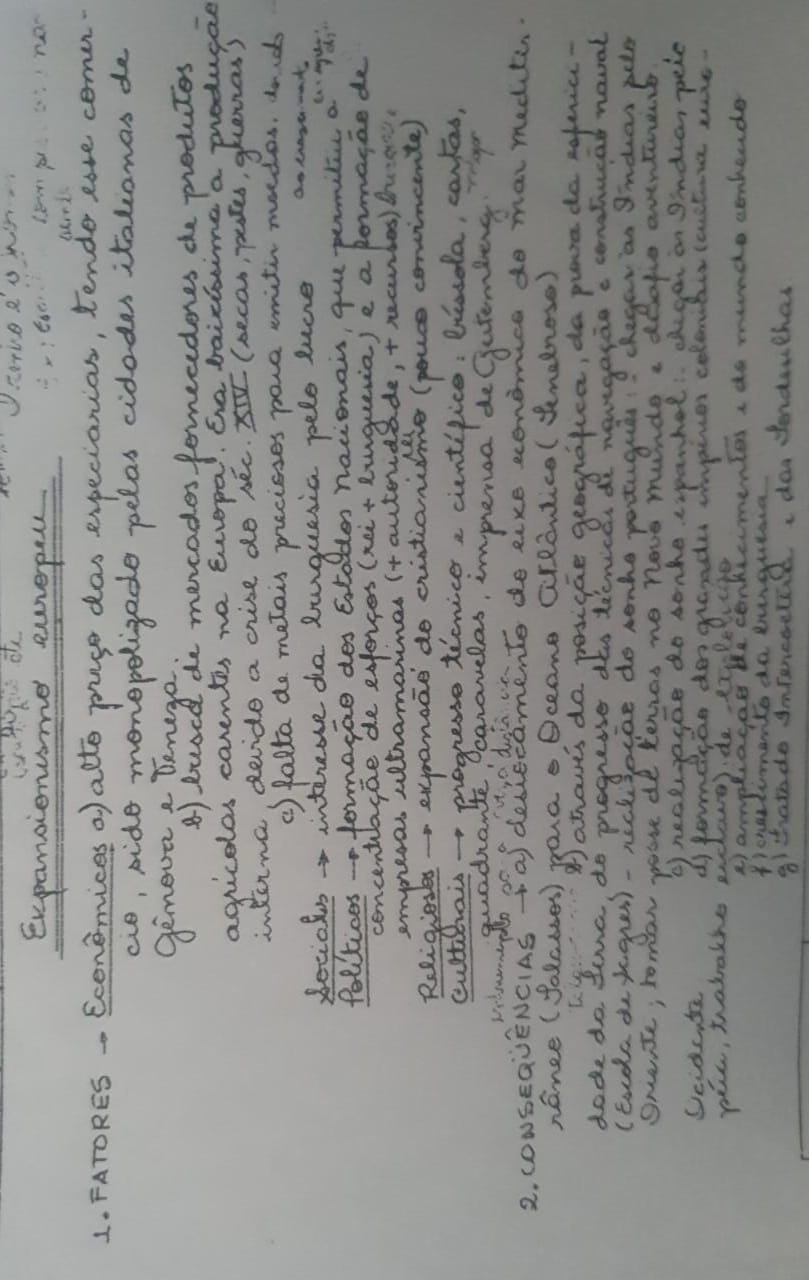 Expansionismo europeu
1. FATORES → Econômicos a) alto preço das especiarias, tendo esse comér-
cio, sido monopolizado pelas cidades italianas de
Gênova e Veneza.
b) busca de mercados fornecedores de produtos
agrícolas carentes na Europa. Era baixíssima a produção
interna devido a crise do séc. XIV (secas, pestes, guerras)
c) falta de metais preciosos para emitir moedas.
Sociales → interesse da burguesia pelo lucro
Políticos → formação dos Estados Nacionais, que permitiu a
concentração de esforços (rei + burguesia) e a formação de
empresas ultramarinas (+ autoridade, + recursos)
Religiosos → expansão do cristianismo (pouco convincente)
Culturais → progresso técnico e científico: bússola, cartas,
quadrante, caravelas, imprensa de Gutemberg.
2. CONSEQÜÊNCIAS → a) deslocamento do eixo econômico do mar Mediter-
râneo (Talassos) para o Oceano Atlântico (Tenebroso)
b) através da posição geográfica, da prova da esferici-
dade da Terra, do progresso das técnicas de navegação e construção naval
(Escola de Sagres) - realização do sonho português: chegar as Índias pelo
Oriente; tomar posse de terras no Novo Mundo e desafio aventureiro.
c) realização do sonho espanhol: chegar às Índias pelo
Ocidente
d) formação dos grandes impérios coloniais (cultura euro-
péia, trabalho escravo) de
e) ampliação de conhecimentos e do mundo conhecido
f) crescimento da burguesia
g) tratado Intercoetera e das Tordesilhas